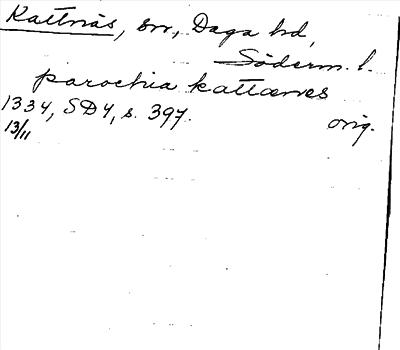 Kattnäs, sn, Daga hd,
Söderm. l.
parochia kattænes
1334, SD4, s. 397. orig.
13/11